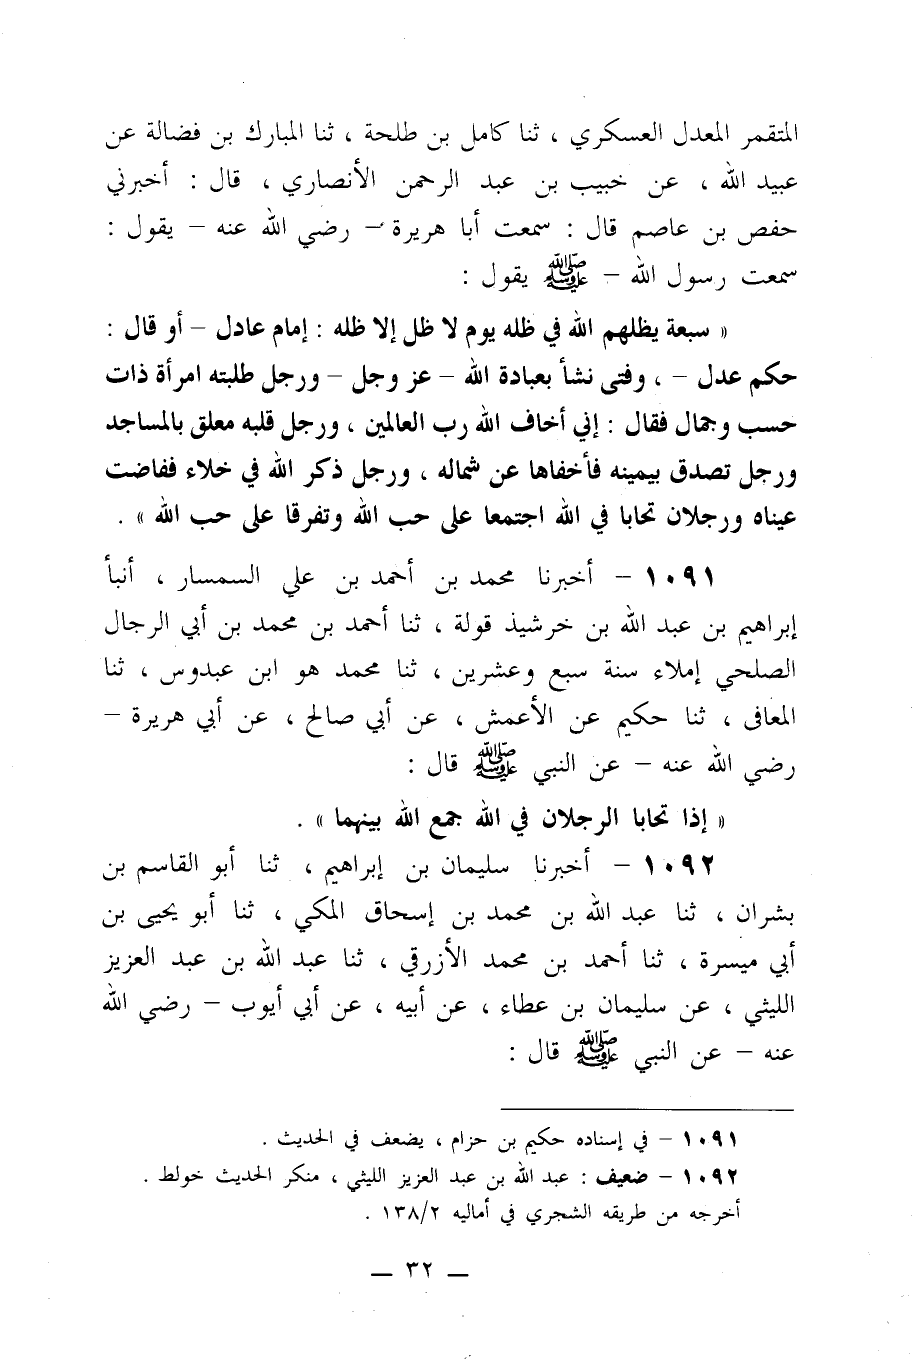 المتقمر المعدل العسكري ، ثنا كامل بن طلحة ، ثنا المبارك بن فضالة عن
عبيد الله ، عن خبيب بن عبد الرحمن الأنصاري ، قال : أخبرني
حفص بن عاصم قال : سمعت أبا هريرة – رضي الله عنه – يقول :
سمعت رسول الله – ﷺ يقول :
« سبعة يظلهم الله في ظله يوم لا ظل إلا ظله : إمام عادل – أو قال :
حكم عدل – ، وفتى نشأ بعبادة الله – عز وجل – ورجل طلبته امرأة ذات
حسب وجمال فقال : إني أخاف الله رب العالمين ، ورجل قلبه معلق بالمساجد
ورجل تصدق بيمينه فأخفاها عن شماله ، ورجل ذكر الله في خلاء ففاضت
عيناه ورجلان تحابا في الله اجتمعا على حب الله وتفرقا على حب الله » .
١٠٩١ – أخبرنا محمد بن أحمد بن علي السمسار ، أنبأ
إبراهيم بن عبد الله بن خرشيذ قولة ، ثنا أحمد بن محمد بن أبي الرجال
الصلحي إملاء سنة سبع وعشرين ، ثنا محمد هو ابن عبدوس ، ثنا
المعافى ، ثنا حكيم عن الأعمش ، عن أبي صالح ، عن أبي هريرة –
رضي الله عنه – عن النبي ﷺ قال :
« إذا تحابا الرجلان في الله جمع الله بينهما » .
١٠٩٢ – أخبرنا سليمان بن إبراهيم ، ثنا أبو القاسم بن
بشران ، ثنا عبد الله بن محمد بن إسحاق المكي ، ثنا أبو يحيى بن
أبي ميسرة ، ثنا أحمد بن محمد الأزرقي ، ثنا عبد الله بن عبد العزيز
الليثي ، عن سليمان بن عطاء ، عن أبيه ، عن أبي أيوب – رضي الله
عنه – عن النبي ﷺ قال :
١٠٩١ – في إسناده حكيم بن حزام ، يضعف في الحديث .
١٠٩٢ – ضعيف : عبد الله بن عبد العزيز الليثي ، منكر الحديث خولط .
أخرجه من طريقه الشجري في أماليه ١٣٨/٢ .
– ٣٢ –